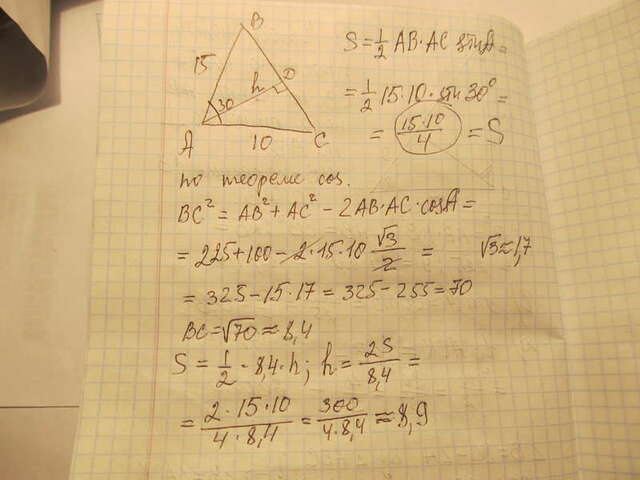 B
15
h
D
30
A
10
C
S = 1/2 AB·AC sin A =
= 1/2 15·10·sin 30° =
= 15·10/4 = S
по теореме cos.
BC² = AB² + AC² - 2AB·AC·cosA =
= 225+100-2·15·10 √3/2 = √3≈1,7
= 325-15·17 = 325-255=70
BC=√70 ≈ 8,4
S = 1/2 · 8,4·h; h = 2S/8,4 =
= 2·15·10/4·8,4 = 300/4·8,4 ≈ 8,9